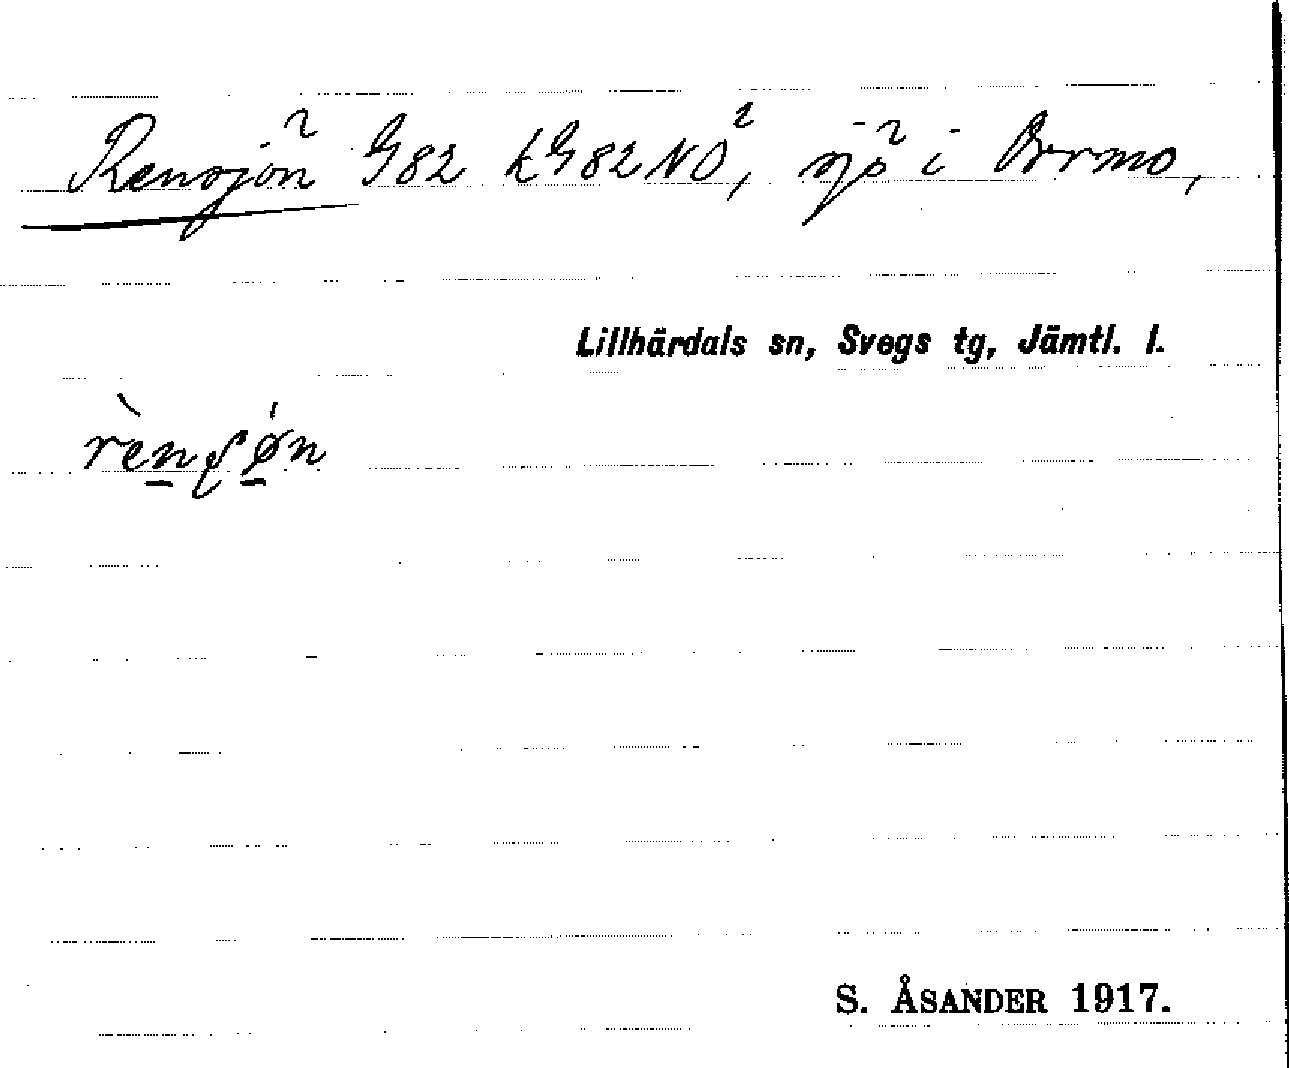 Rensjön G82 kG82NO, sjö i Orrmo,
Lillhärdals sn, Svegs tg, Jämtl. l.
rènʃǿn
S. ÅSANDER 1917.